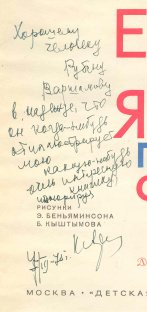 Хорошему
человеку
Рубину
Варшамову
в надежде, что
он когда-нибудь
отиллюстрирует
мою
какую-нибудь
очень интересную
книжку
Е
Я
П
РИСУНКИ
Э. БЕНЬЯМИНСОНА
Б. КЫШТЫМОВА
МОСКВА · «ДЕТСКАЯ